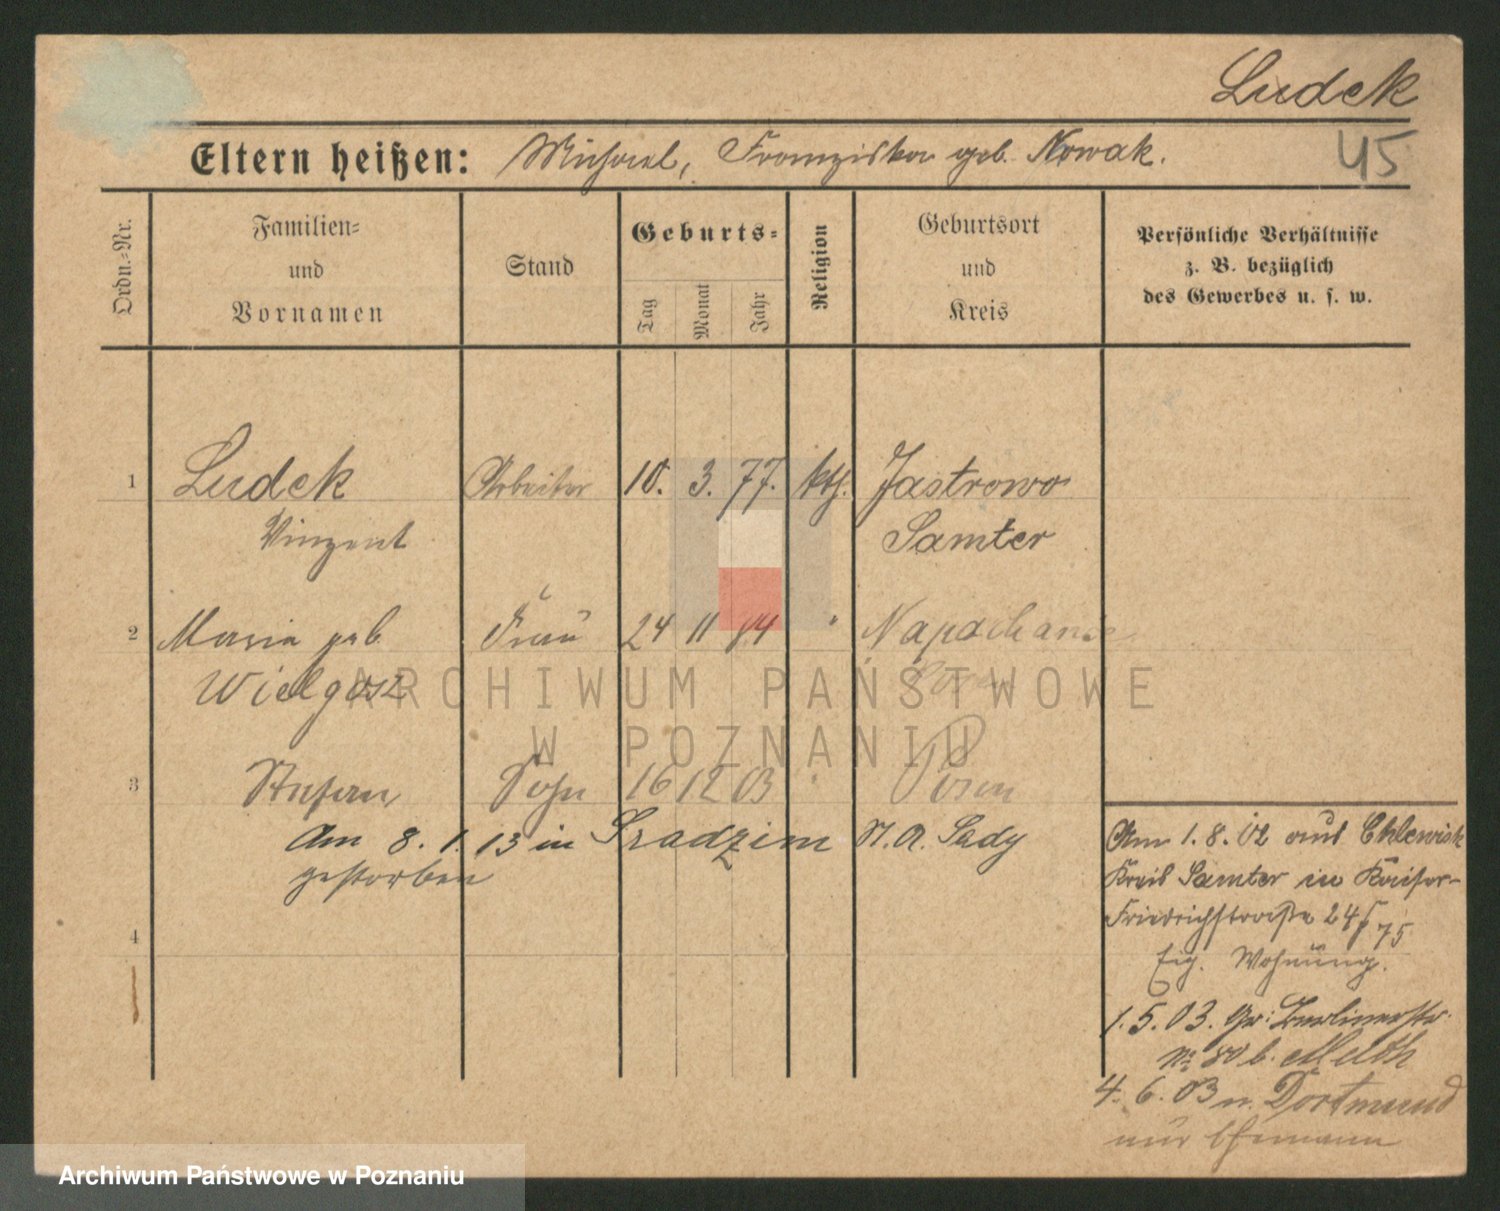 Ludek
45
Eltern heißen: Michael, Franziska geb. Nowak.
Ordn.-Nr.
Familien-
und
Vornamen
Stand
Geburts-
Tag
Monat
Jahr
Religion
Geburtsort
und
Kreis
Persönliche Verhältnisse
z. B. bezüglich
des Gewerbes u. s. w.
1 Ludek Arbeiter 10. 3. 77. kth. Jastrowo
Vinzent Samter
2 Maria geb. Frau 24 11 84 " Napachanie
Wielgosz Posen
3 Stefan Sohn 16 12 03 " Posen
Am 8. 1. 13 in Sradzim St. A. Sady
gestorben
4
Am 1. 8. 02 aus Chlewisk
Kreis Samter in Kaiser-
Friedrichstraße 24/75
Eig. Wohnung.
1. 5. 03. Gr: Berlinerstr.
No 80 b.
4. 6. 03 n. Dortmund
nur Ehemann
ARCHIWUM PAŃSTWOWE
W POZNANIU
Archiwum Państwowe w Poznaniu